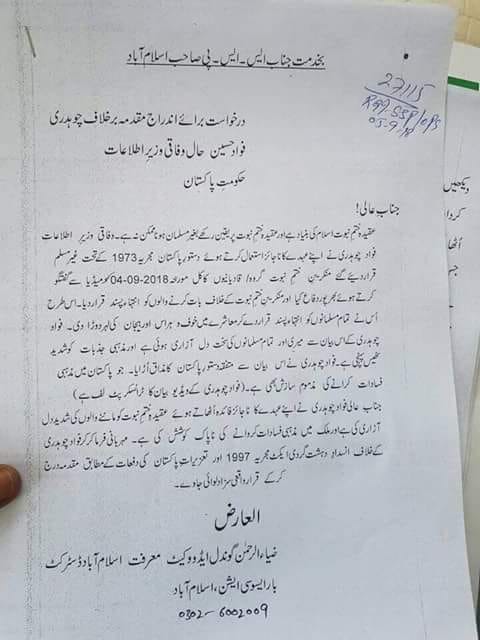 بخدمت جناب ایس۔ایس۔پی صاحب اسلام آباد
27115
05-9-18
درخواست برائے اندراج مقدمہ برخلاف چوہدری
فواد حسین حال وفاقی وزیر اطلاعات
حکومت پاکستان
جناب عالی!
عقیدہ ختم نبوت اسلام کی بنیاد ہے اور عقیدہ ختم نبوت پر یقین رکھے بغیر مسلمان ہونا ممکن نہ ہے۔ وفاقی وزیر اطلاعات
فواد چوہدری نے اپنے عہدے کا ناجائز استعمال کرتے ہوئے دستور پاکستان مجریہ 1973 کے تحت غیر مسلم
قرار دیئے گئے منکرین ختم نبوت گروہ/ قادیانیوں کا کل مورخہ 04-09-2018 کو میڈیا سے گفتگو
کرتے ہوئے بھرپور دفاع کیا اور منکرین ختم نبوت کے خلاف بات کرنے والوں کو انتہاء پسند قرار دیا۔ اس طرح
اُس نے تمام مسلمانوں کو انتہاء پسند قرار دے کر معاشرے میں خوف و ہراس اور ہیجان کی لہر دوڑا دی۔ فواد
چوہدری کے اس بیان سے میری اور تمام مسلمانوں کی سخت دل آزاری ہوئی ہے اور مذہبی جذبات کو شدید
ٹھیس پہنچی ہے۔ فواد چوہدری نے اس بیان سے متفقہ دستور پاکستان کا مذاق اُڑایا۔ جو پاکستان میں مذہبی
فسادات کرانے کی مذموم سازش بھی ہے۔ (فواد چوہدری کے ویڈیو بیان کا ٹرانسکرپٹ لف ہے)
جناب عالی فواد چوہدری نے اپنے عہدے کا ناجائز فائدہ اُٹھاتے ہوئے عقیدہ ختم نبوت کو ماننے والوں کی شدید دل
آزاری کی ہے اور ملک میں مذہبی فسادات کروانے کی ناپاک کوشش کی ہے۔ مہربانی فرما کر فواد چوہدری
کے خلاف انسداد دہشت گردی ایکٹ مجریہ 1997 اور تعزیرات پاکستان کی دفعات کے مطابق مقدمہ درج
کر کے قرار واقعی سزا دلوائی جاوے۔
العارض
ضیاء الرحمٰن گوندل ایڈووکیٹ معرفت اسلام آباد ڈسٹرکٹ
بار ایسوسی ایشن، اسلام آباد
0302-6002009